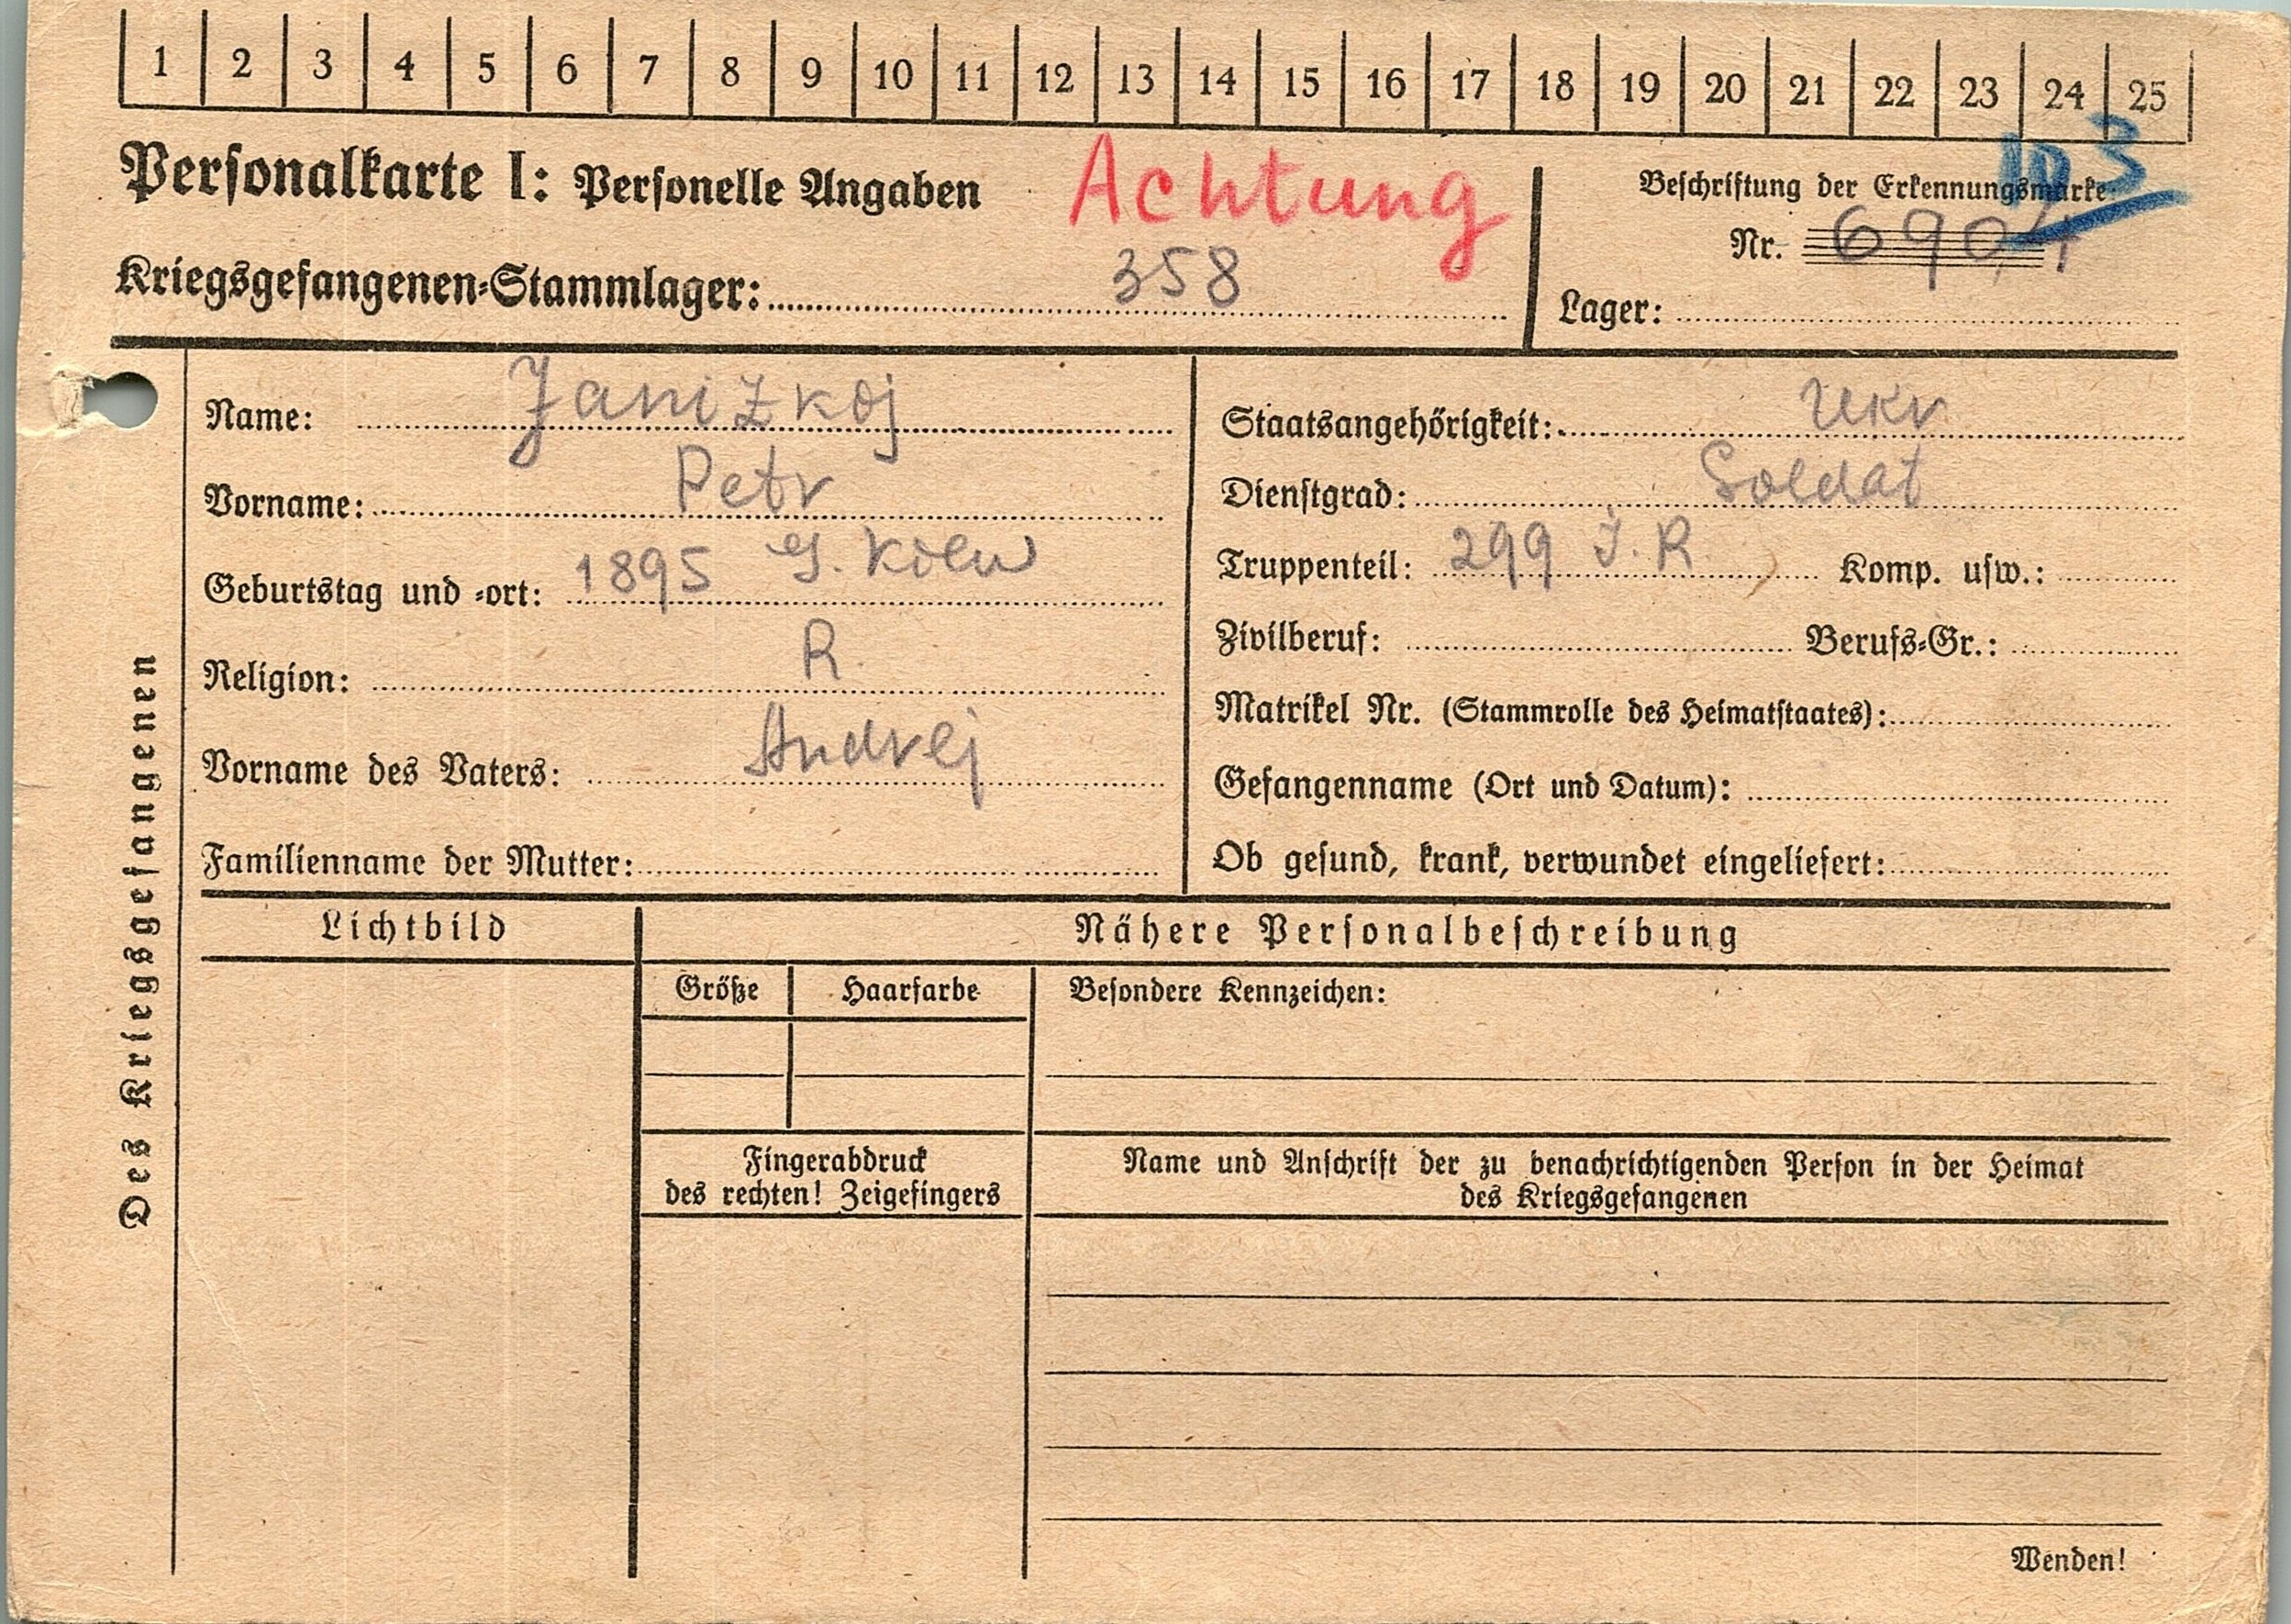 1 2 3 4 5 6 7 8 9 10 11 12 13 14 15 16 17 18 19 20 21 22 23 24 25
103
Personalkarte I: Personelle Angaben Achtung
Beschriftung der Erkennungsmarke
Nr. 6904
Kriegsgefangenen-Stammlager: 358
Lager:
Des Kriegsgefangenen
Name: Janizkoj
Vorname: Petr
Geburtstag und -ort: 1895 G. Köln
Religion: R.
Vorname des Vaters: Andrej
Familienname der Mutter:
Staatsangehörigkeit: Ukr
Dienstgrad: Soldat
Truppenteil: 299 J.R Komp. usw.:
Zivilberuf: Berufs-Gr.:
Matrikel Nr. (Stammrolle des Heimatstaates):
Gefangenname (Ort und Datum):
Ob gesund, krank, verwundet eingeliefert:
Lichtbild
Nähere Personalbeschreibung
Größe Haarfarbe Besondere Kennzeichen:
Fingerabdruck
des rechten! Zeigefingers
Name und Anschrift der zu benachrichtigenden Person in der Heimat
des Kriegsgefangenen
Wenden!